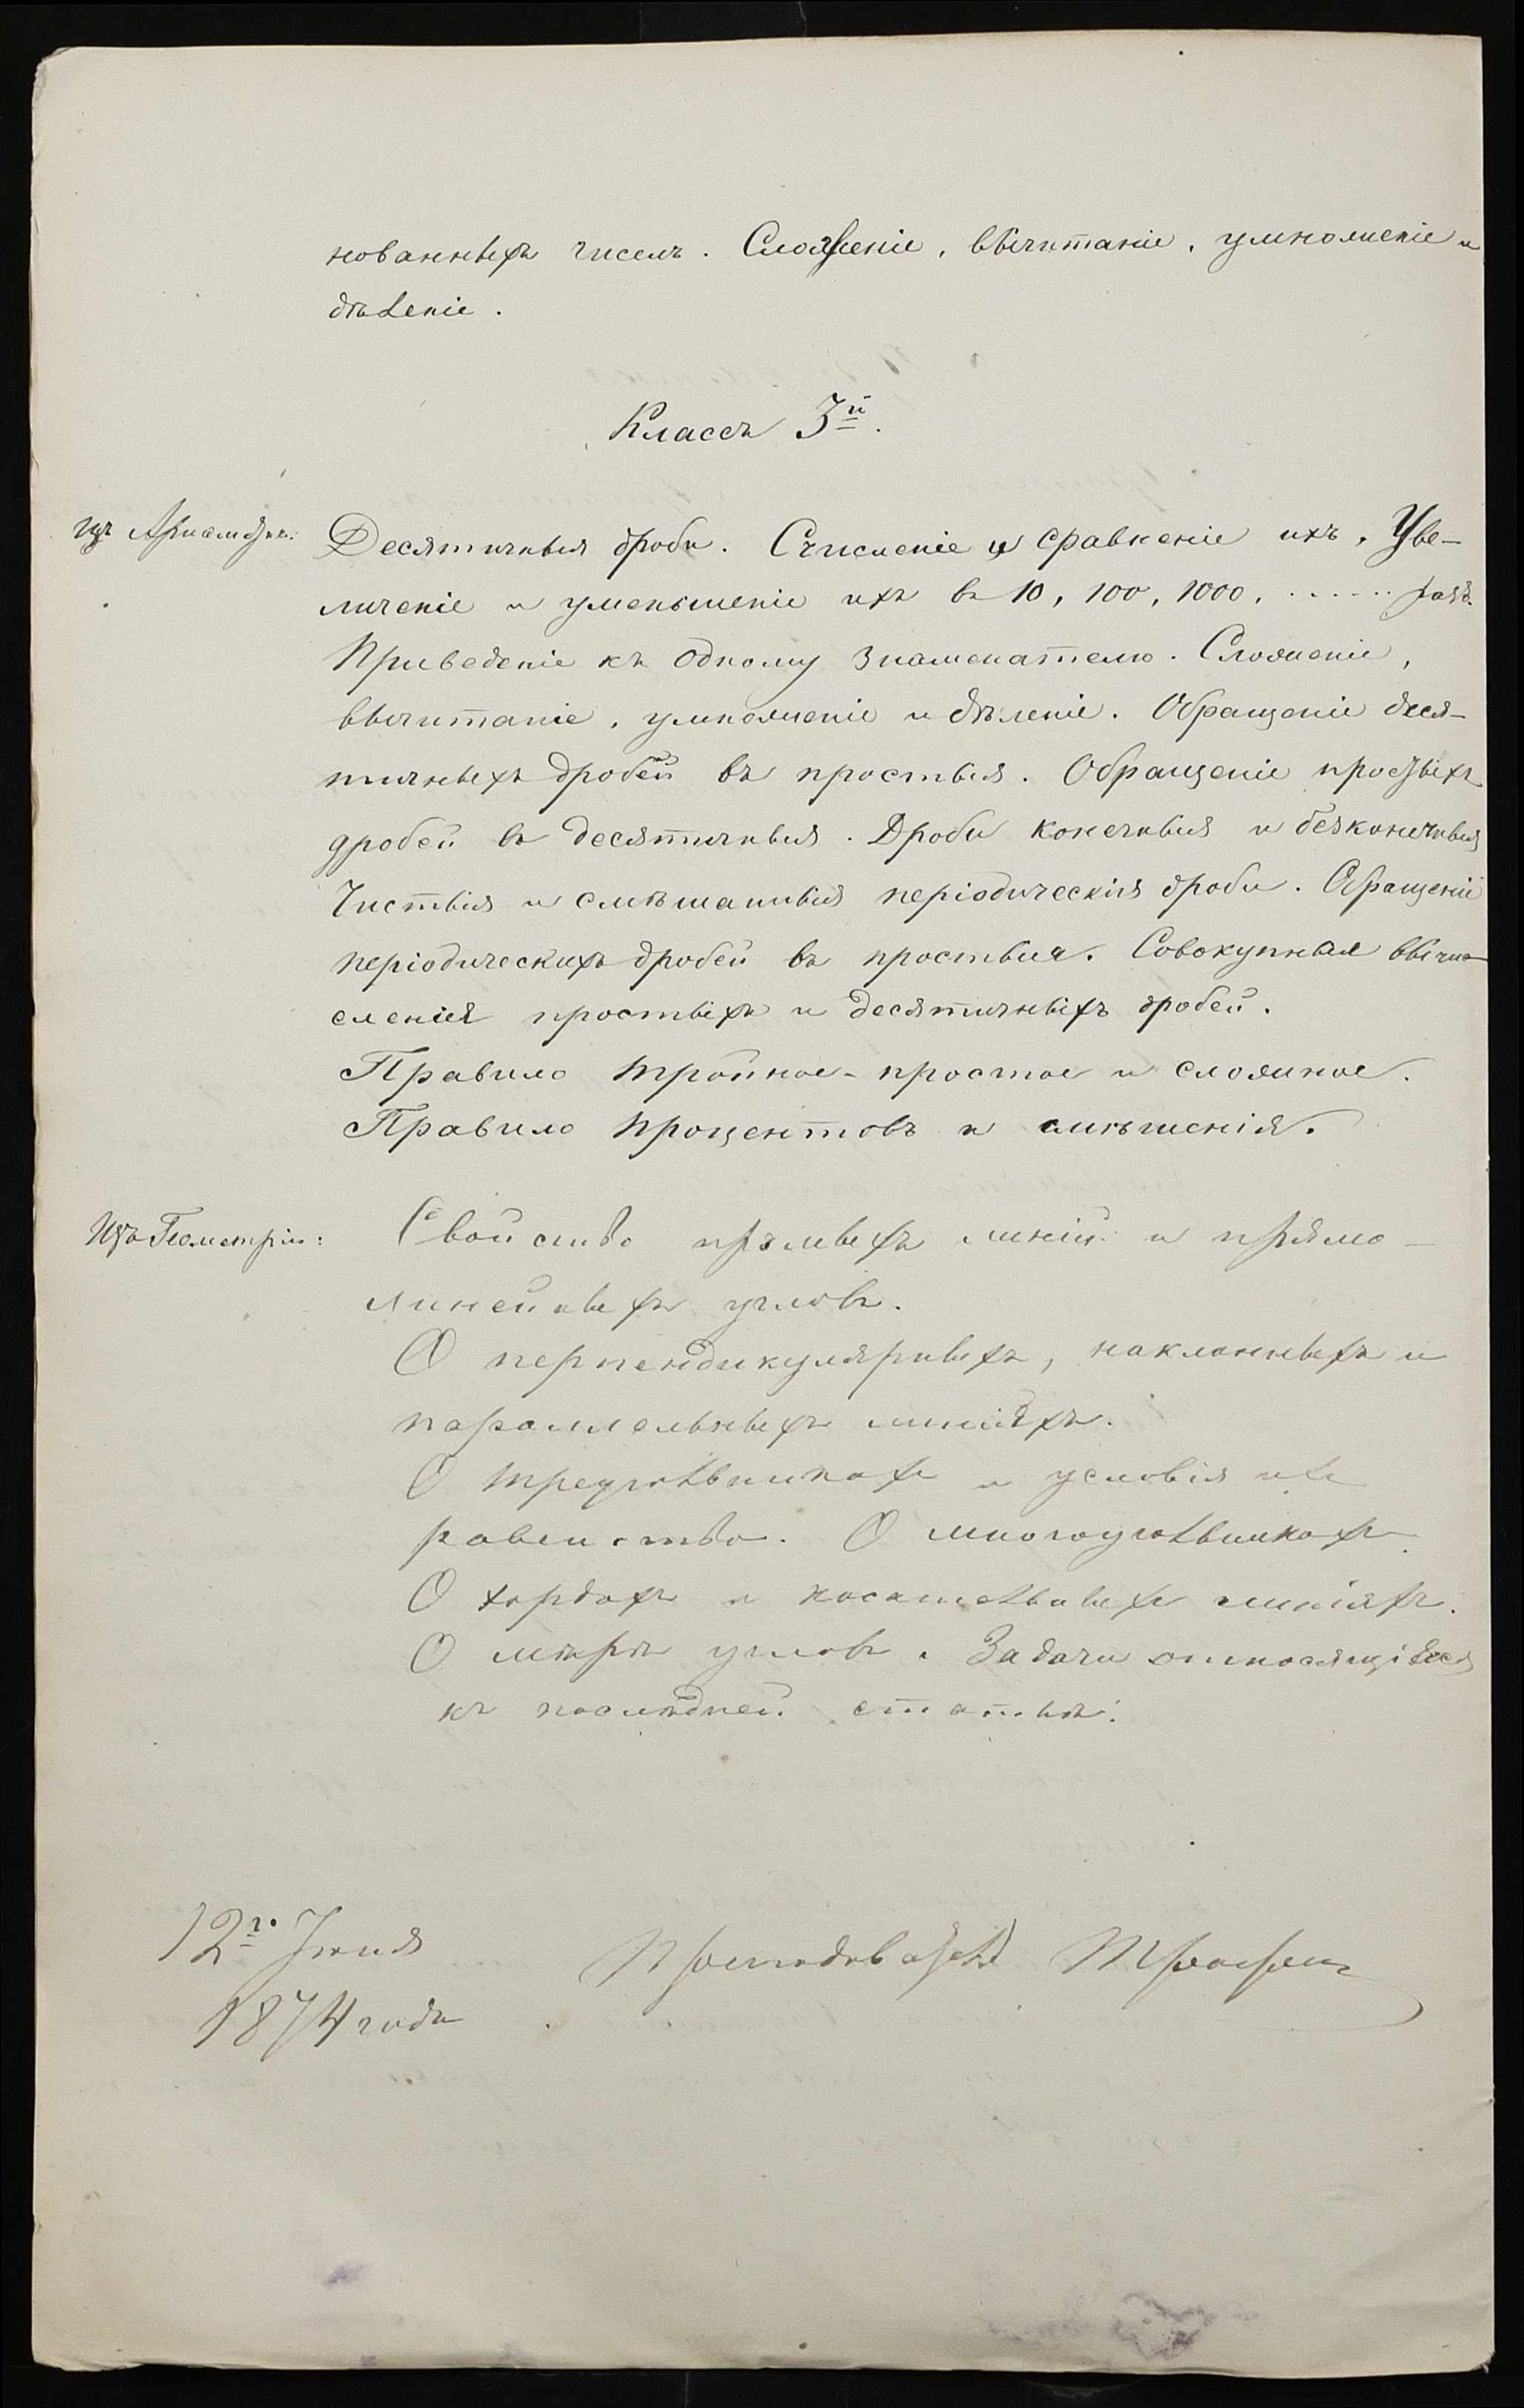 нованныхъ чиселъ. Сложеніе, вычитаніе, умноженіе и
дѣленіе.
Классъ 3й.
Изъ Ариѳметик.:
Десятичныя дроби. Счисленіе и сравненіе ихъ. Уве-
личеніе и уменьшеніе ихъ въ 10, 100, 1000, ...... разъ.
Приведеніе къ одному знаменателю. Сложеніе,
вычитаніе, умноженіе и дѣленіе. Обращеніе деся-
тичныхъ дробей въ простыя. Обращеніе простыхъ
дробей въ десятичныя. Дроби конечныя и безконечныя
Чистыя и смѣшанныя періодическія дроби. Обращеніе
періодическихъ дробей въ простыя. Совокупныя вычи-
сленія простыхъ и десятичныхъ дробей.
Правило тройное - простое и сложное.
Правило процентовъ и смѣшенія.
Изъ Геометріи:
Свойство прямыхъ линій и прямо-
линейныхъ угловъ.
О перпендикулярныхъ, наклонныхъ и
параллельныхъ линіяхъ.
О треугольникахъ и условія ихъ
равенства. О многоугольникахъ.
О хордахъ и касательныхъ линіяхъ.
О мѣрѣ угловъ. Задачи относящіяся
къ послѣдней статьѣ.
12го Іюня
1874 года
Преподаватель